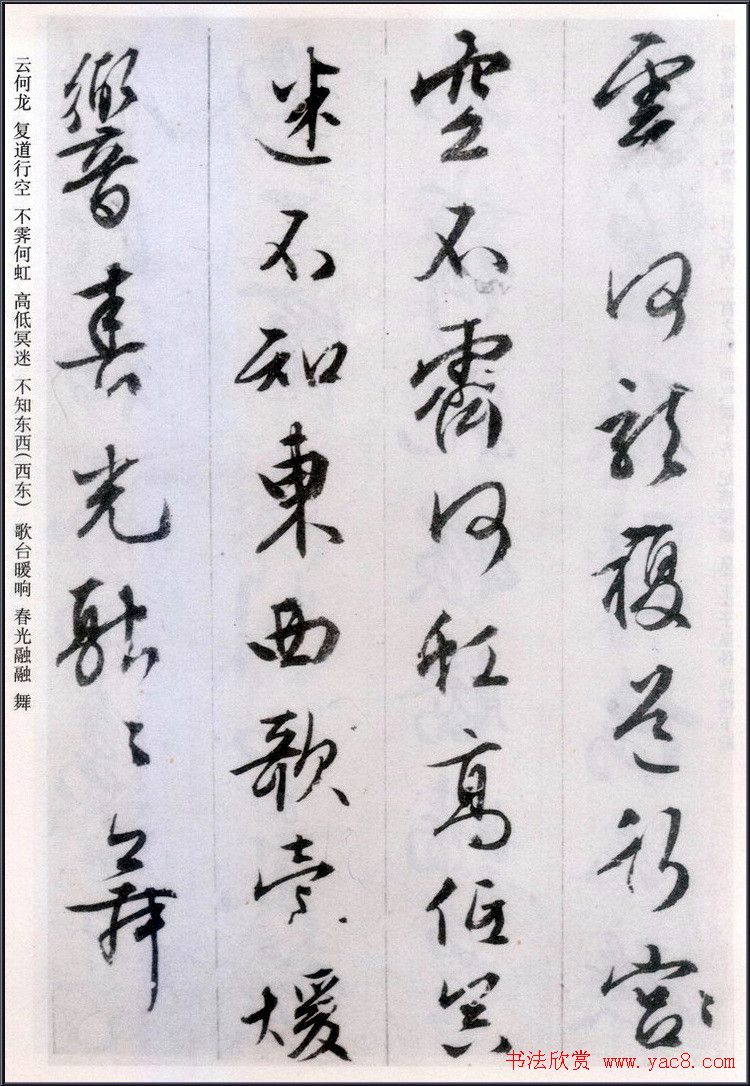 雲何龍複道行宮
空不霽何虹高低冥
迷不知東西歌臺暖
響春光融〻舞
云何龙 复道行空 不霁何虹 高低冥迷 不知东西(西东) 歌台暖响 春光融融 舞
书法欣赏 www.yac8.com